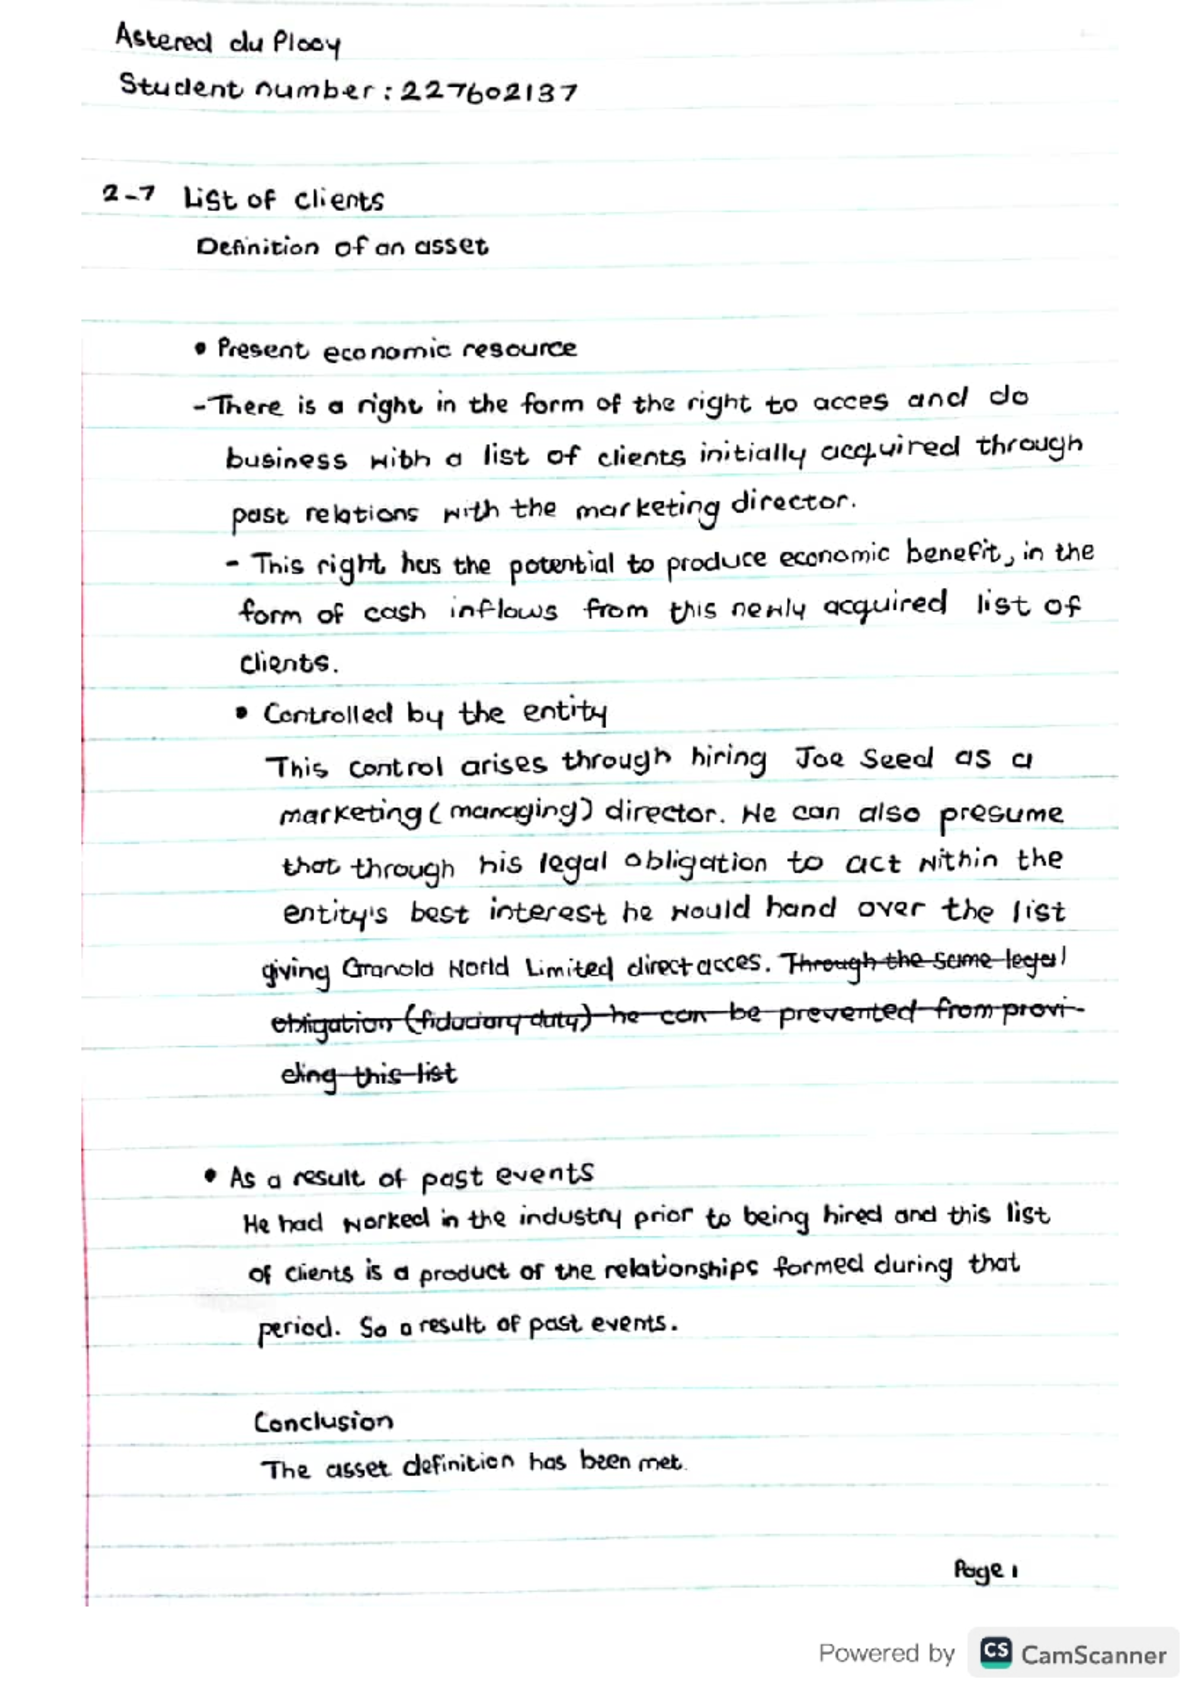 Astered du Plooy
Student number : 227602137
2-7 List of clients
Definition of an asset
• Present economic resource
- There is a right in the form of the right to acces and do
business with a list of clients initially acquired through
past relations with the marketing director.
- This right has the potential to produce economic benefit, in the
form of cash inflows from this newly acquired list of
clients.
• Controlled by the entity
This control arises through hiring Joe Seed as a
marketing (managing) director. He can also presume
that through his legal obligation to act within the
entity's best interest he would hand over the list
giving Granold World Limited direct acces. Through the same legal
obligation (fiduciary duty) he can be prevented from provi-
ding this list
• As a result of past events
He had worked in the industry prior to being hired and this list
of clients is a product of the relationships formed during that
period. So a result of past events.
Conclusion
The asset definition has been met.
Page 1
Powered by CS CamScanner